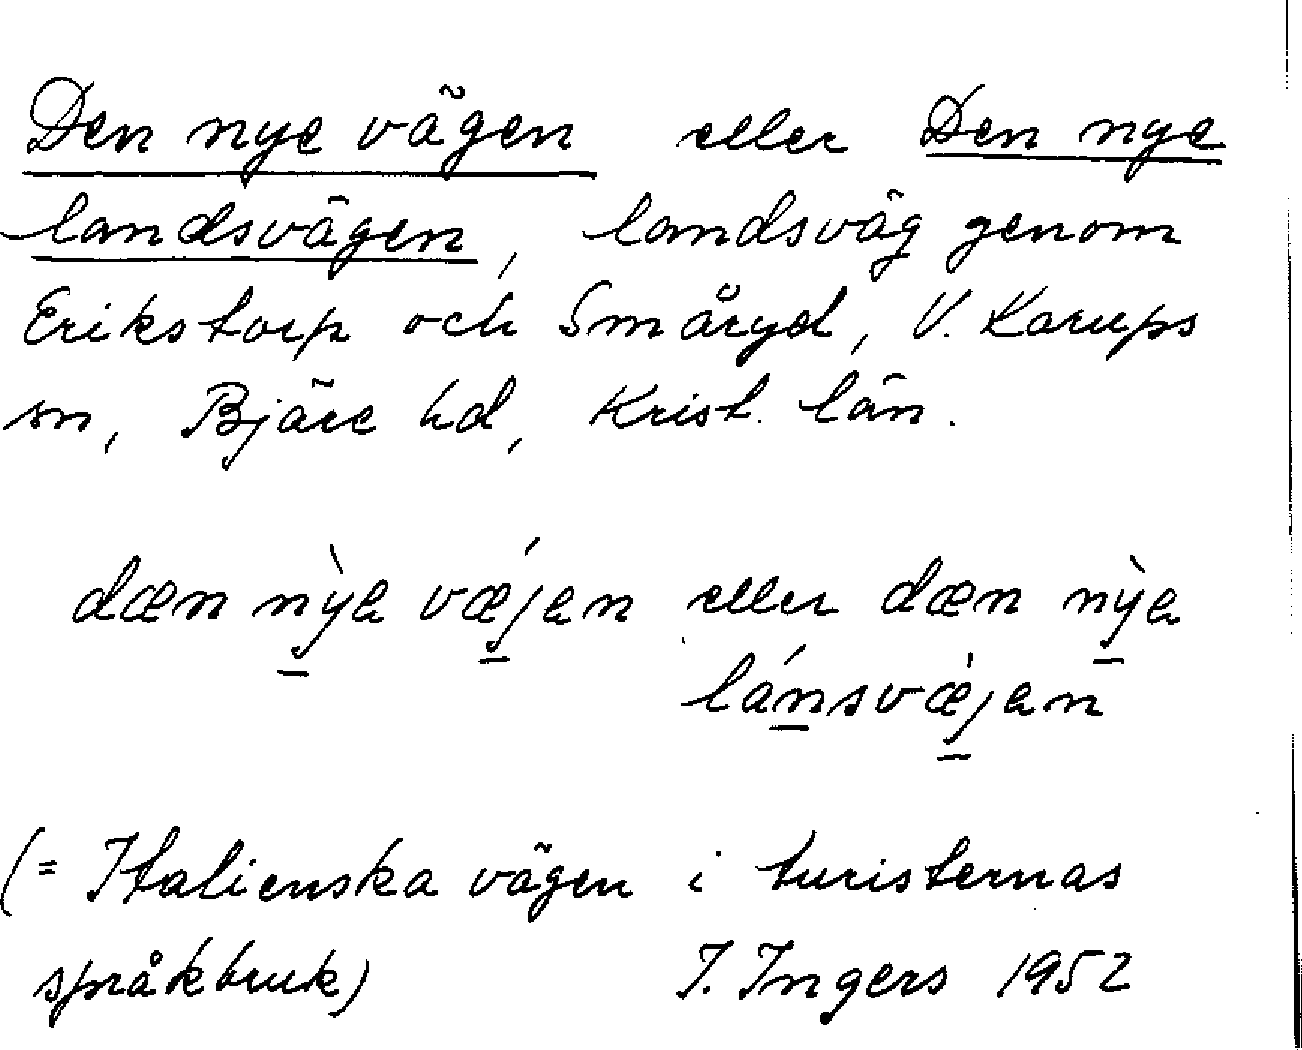 Den nye vägen eller Den nye
landsvägen, landsväg genom
Erikstorp och Småryd, V. Karups
sn, Bjäre hd, Krist. län.
dæn nỳa vǽjan eller dæn nỳa
lánsvæ̀jan
(= Italienska vägen i turisternas
språkbruk) I. Ingers 1952